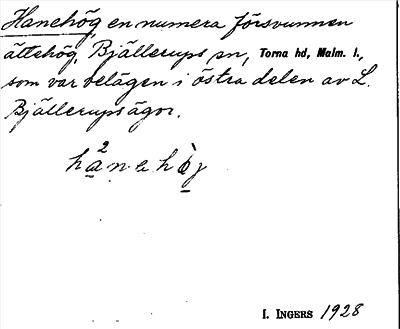 Hanehög, en numera försvunnen
ättehög, Bjällerups sn, Torna hd, Malm. l.,
som var belägen i östra delen av L.
Bjällerups ägor.
I. INGERS 1928